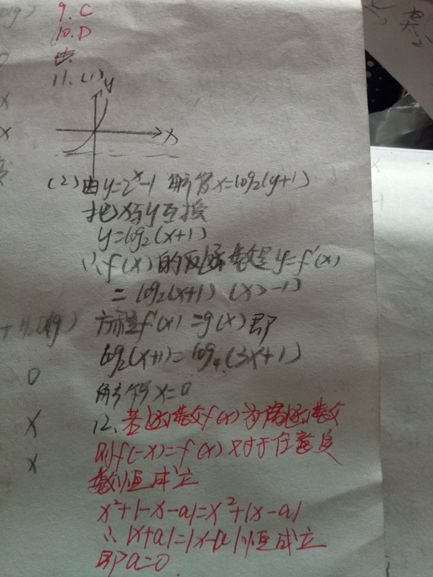 9. C
10. D
11. (1)
y
x
(2) 由y=2^x-1 解得x=log₂(y+1)
把x与y互换
y=log₂(x+1)
∴f(x)的反函数是y=f⁻¹(x)
=log₂(x+1) (x>-1)
方程f⁻¹(x)=g(x)即
log₂(x+1)=log₄(3x+1)
解得x=0
12. 若函数f(x)为偶函数
则f(-x)=f(x)对于任意实
数恒成立
x²+|-x-a|=x²+|x-a|
∴|x+a|=|x-a|恒成立
即a=0